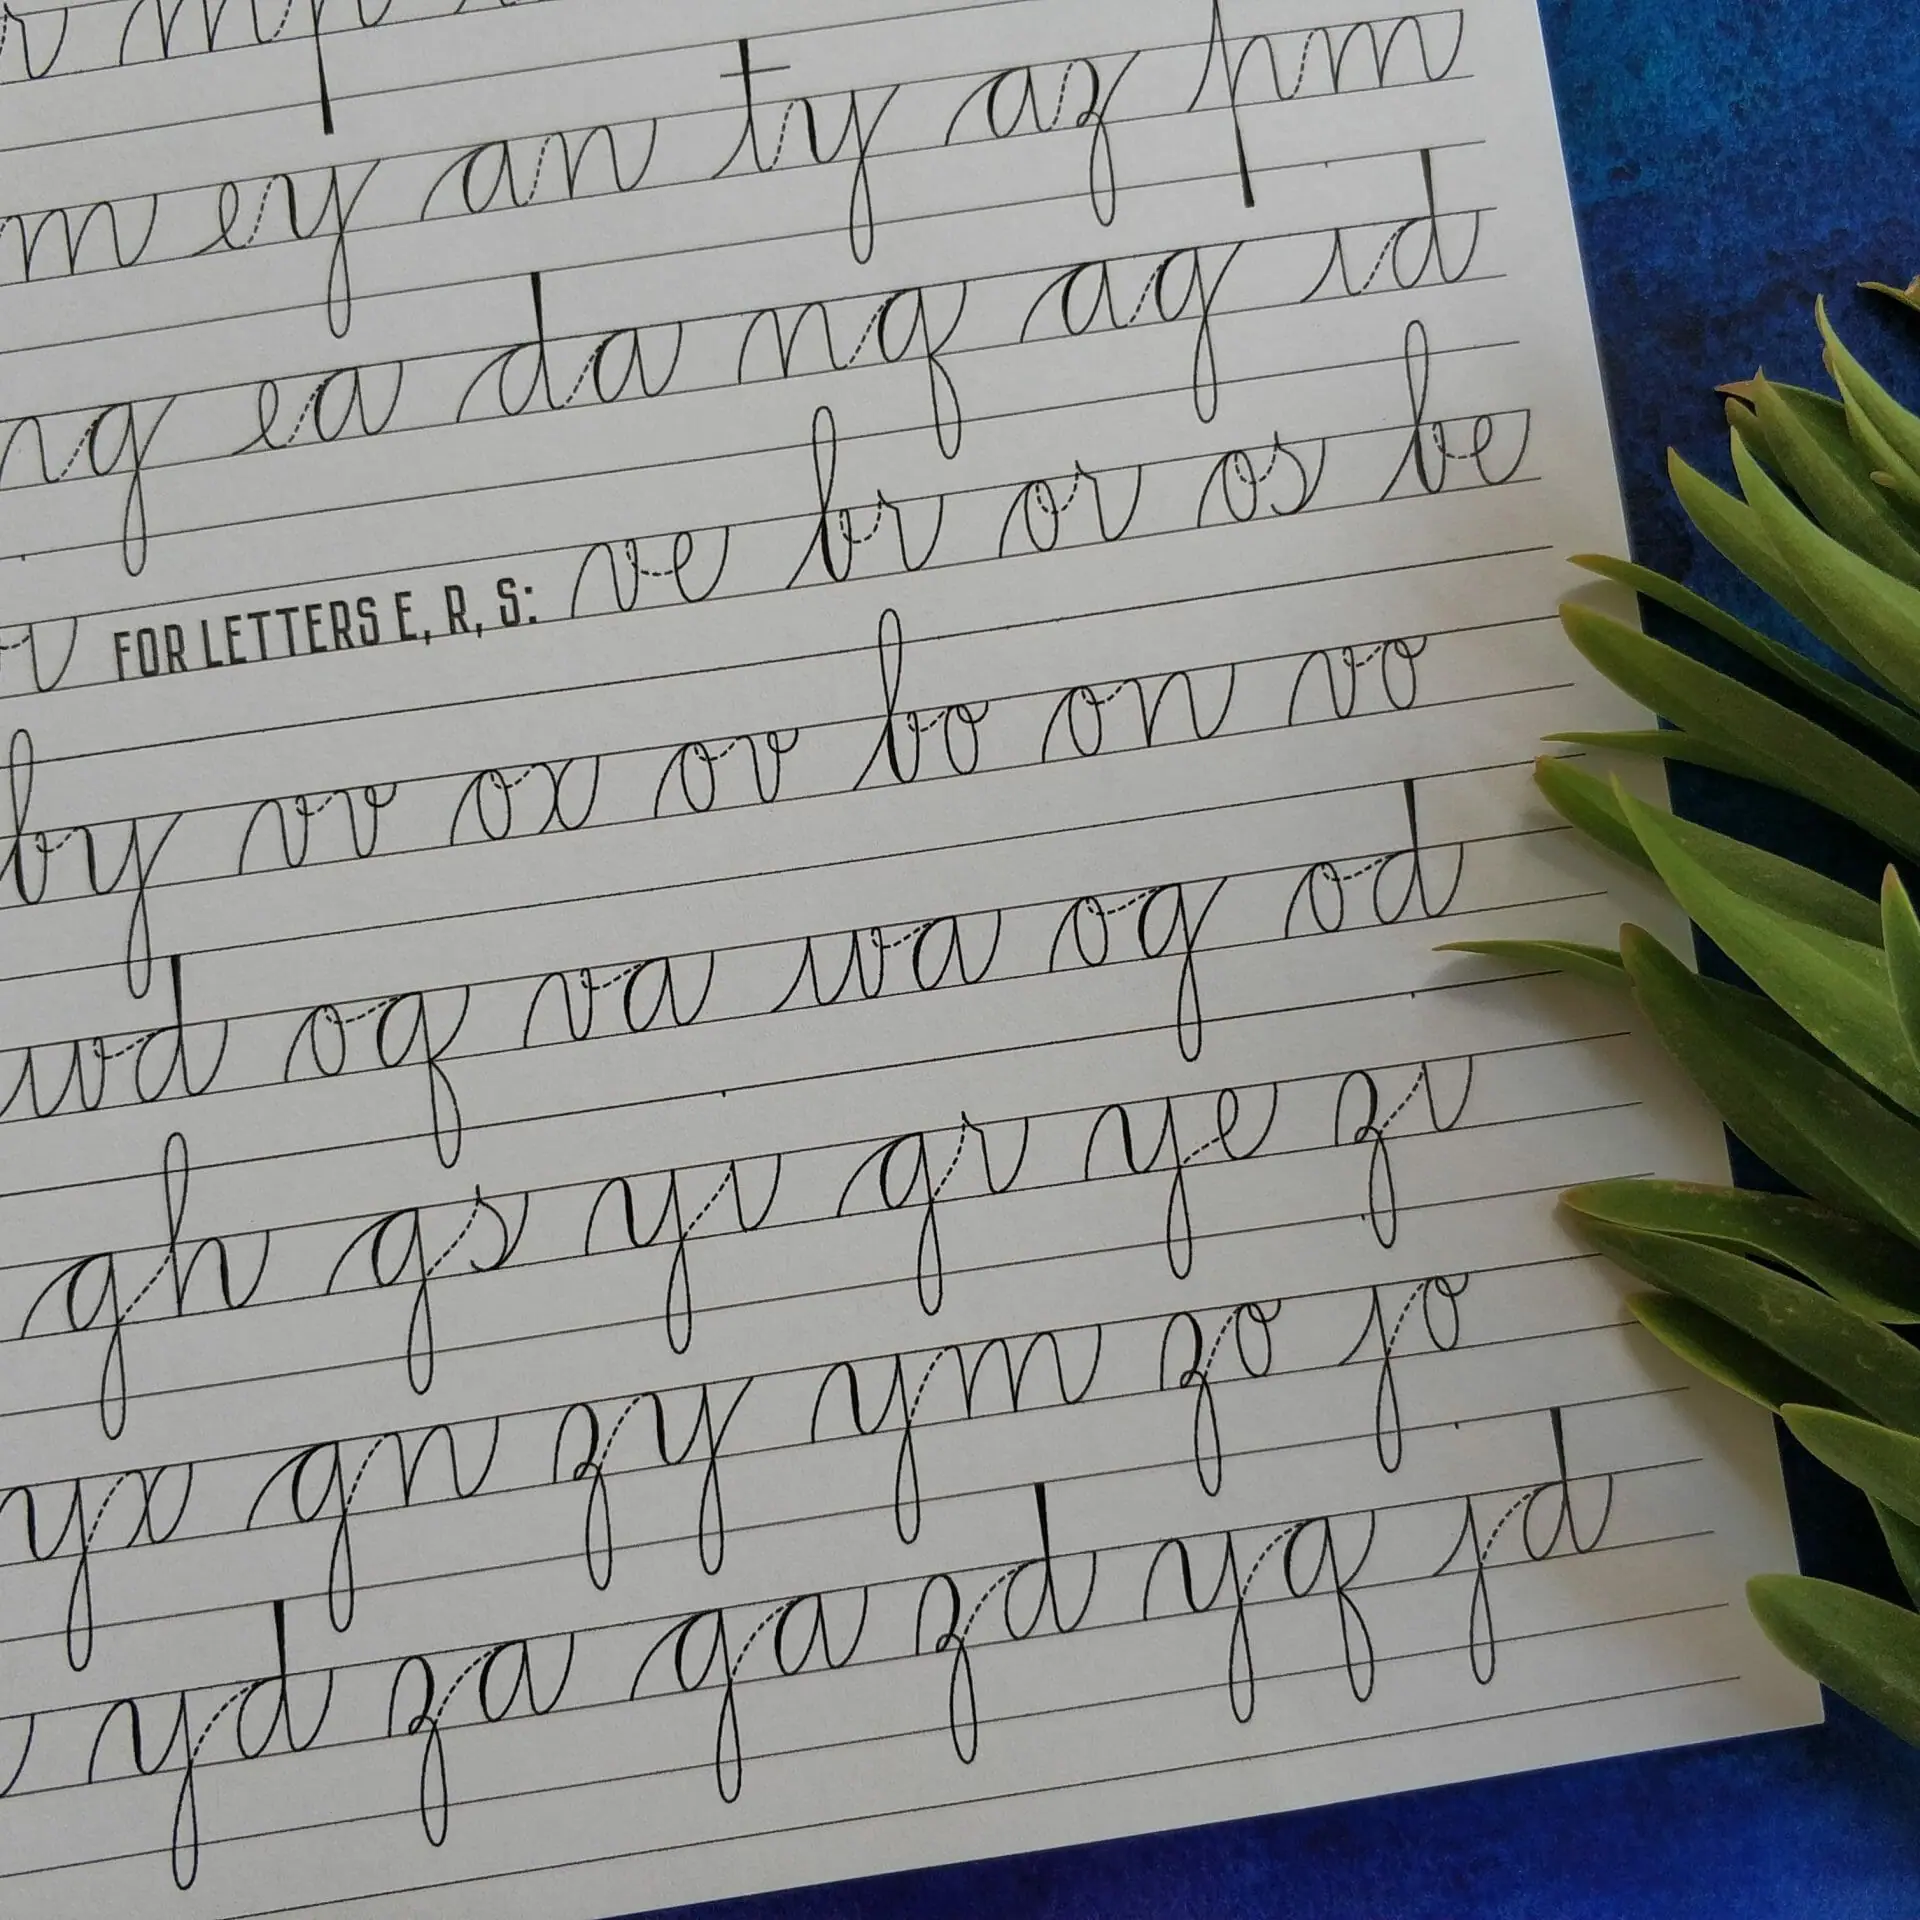 mp
m ey an ty az pm
ng ea da nq ag id
FOR LETTERS E, R, S: ve br or os be
by vv ox ov bo on vo
wd oq va wa og od
gh gs yi gr ye zi
yx gn zy ym zo jo
yd za ga zd yq jd